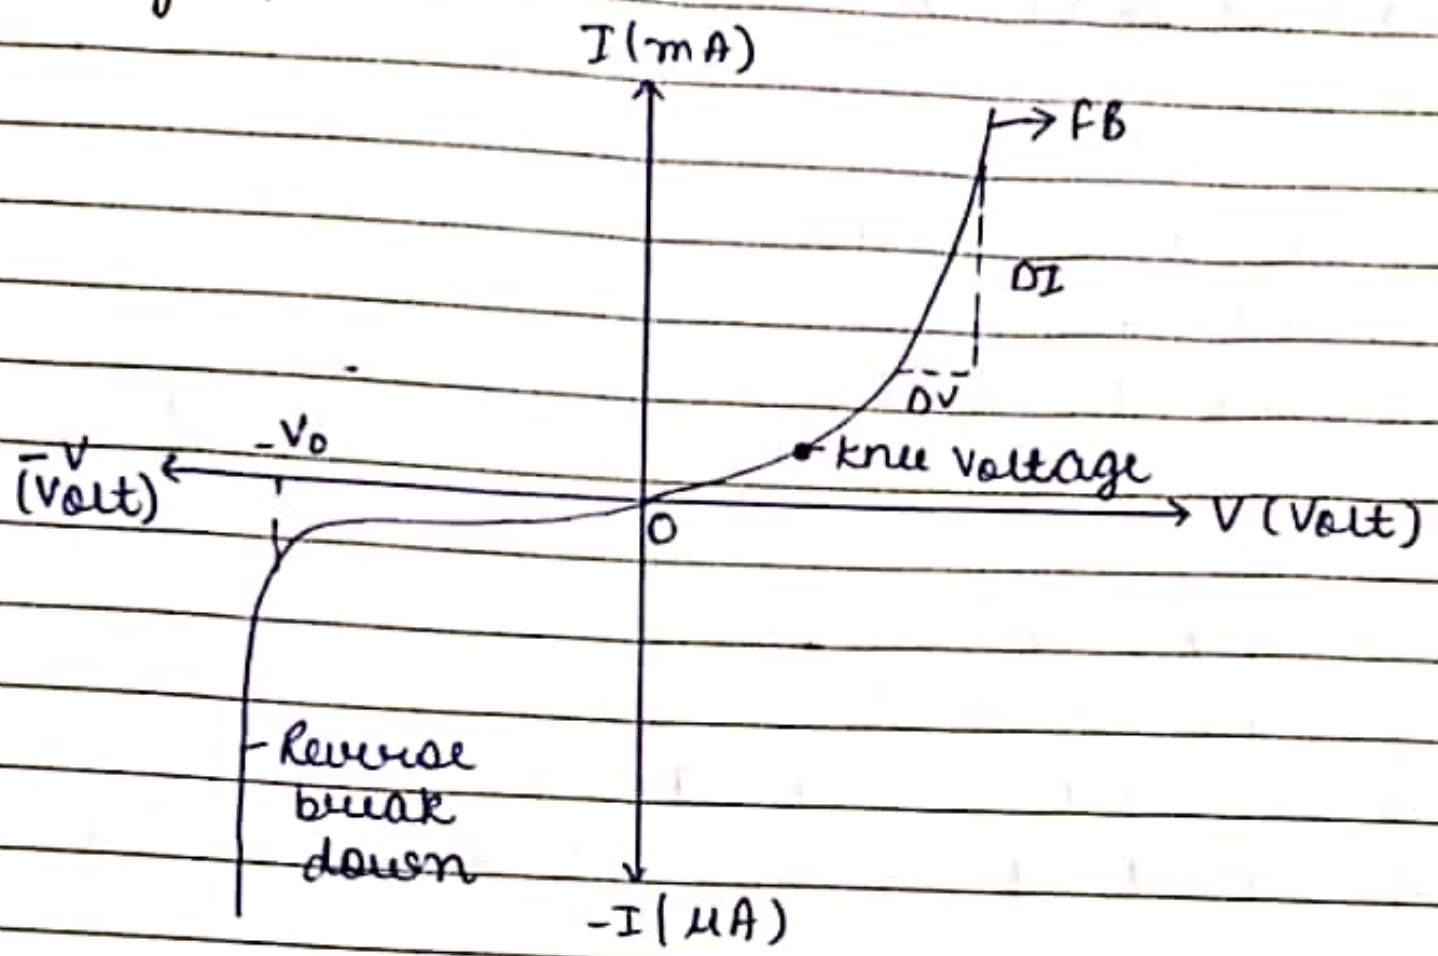 I(mA)
FB
DI
DV
-V₀
-V
(Volt)
knee voltage
V (Volt)
O
Reverse
break
down
-I(μA)